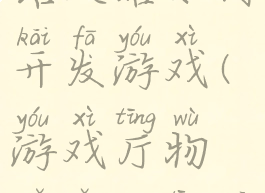 kāi fā yóu xì
开发游戏(
yóu xì tīng wù
游戏厅物